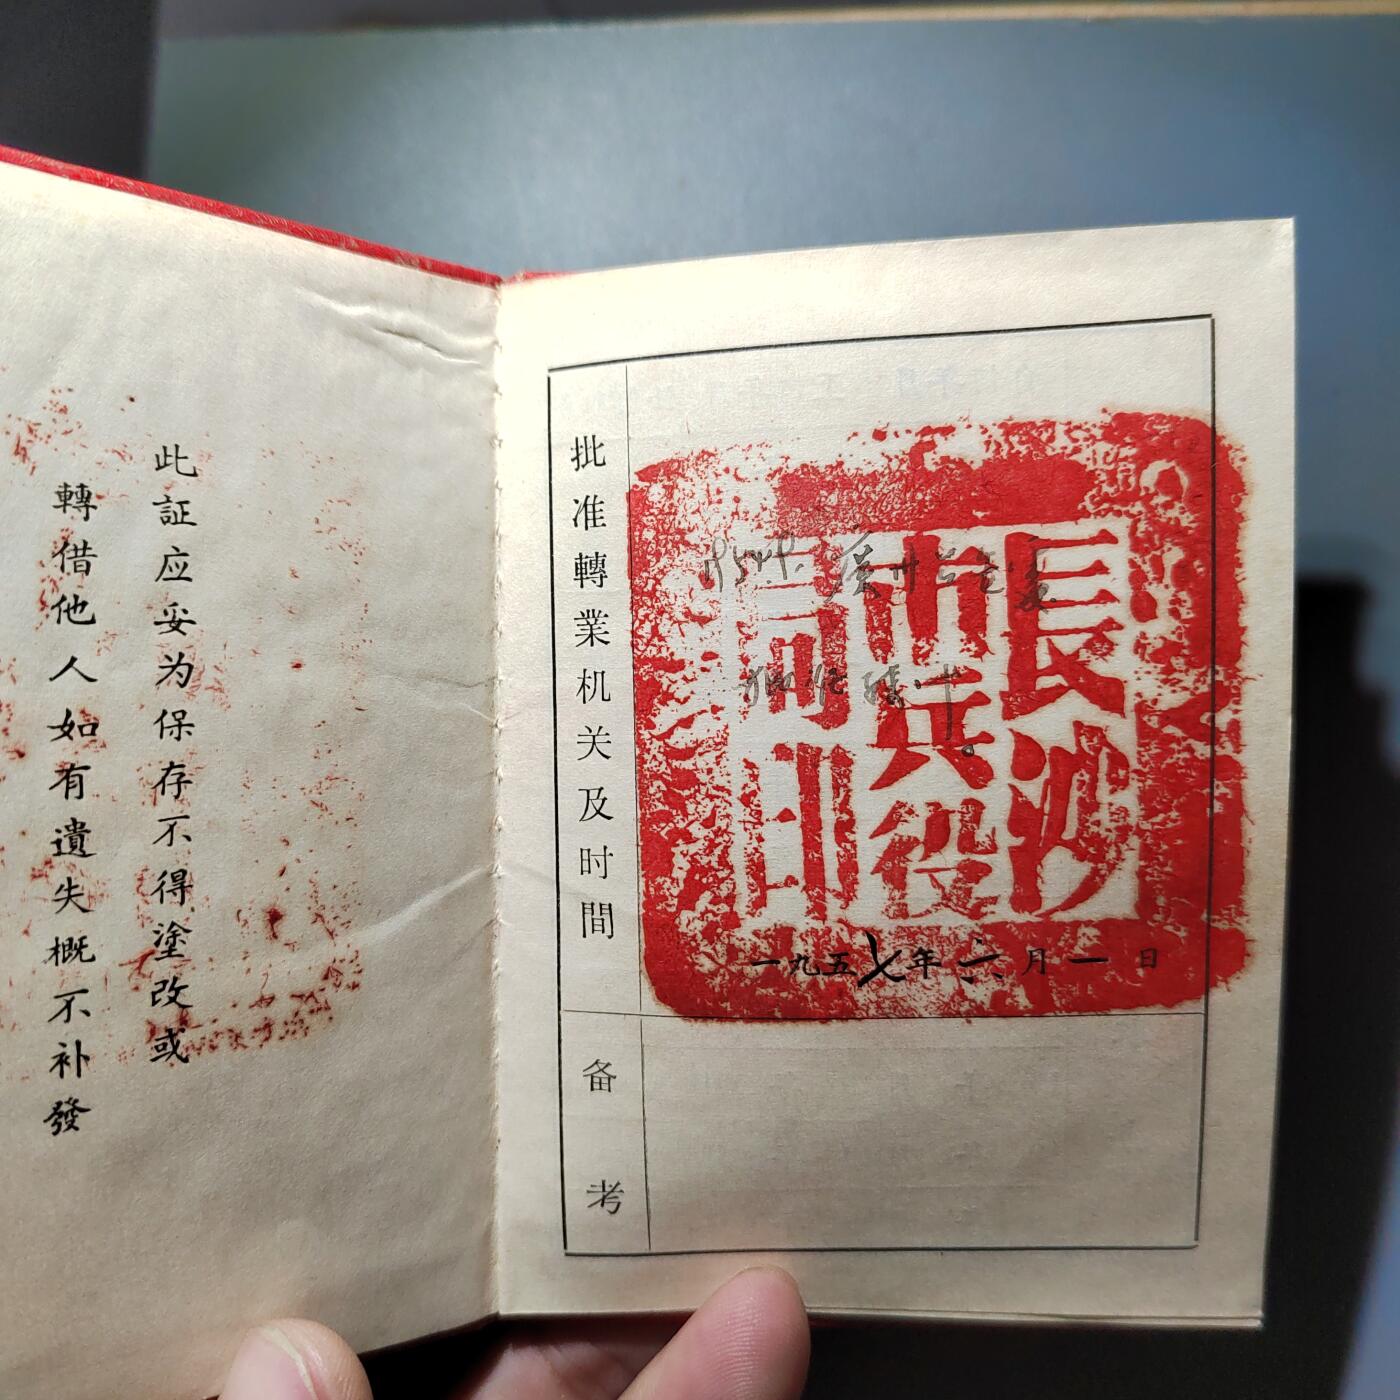 此証应妥为保存不得塗改或
轉借他人如有遺失概不补發
批准轉業机关及时間
長沙
市兵役
局印
一九五七年六月一日
备考